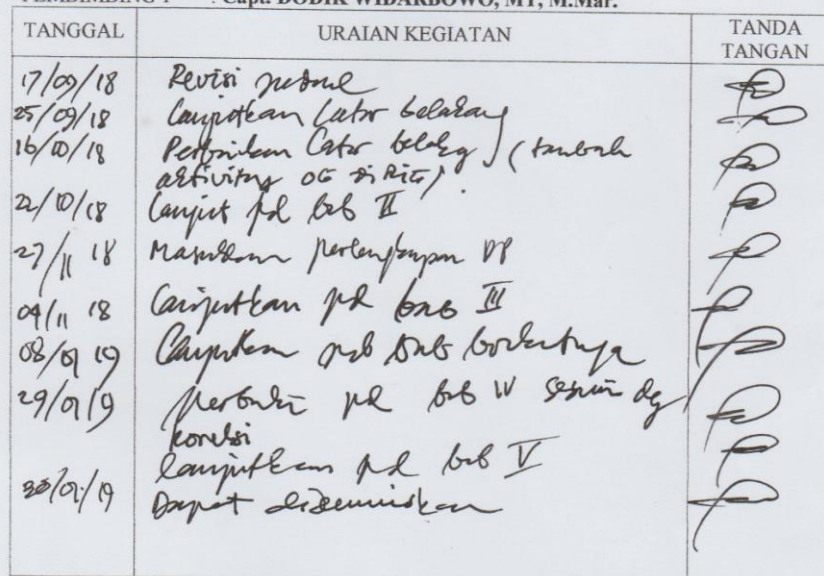 : Capt. DODIK WIDARBOWO, MT, M.Mar.
TANGGAL URAIAN KEGIATAN TANDA TANGAN
17/09/18 Revisi
25/09/18 Lanjutkan latar belakang
16/10/18 Perbaikan latar belakg (tambah
aktivitas
22/10/18 Lanjut pd bab II
27/11 18 Masukkan perlengkapan
04/11 18 Lanjutkan pd bab III
08/01 19 Lanjutkan pd bab berikutnya
29/01/19 perbaiki pd bab IV sesuai dg
koreksi
lanjutkan pd bab V
30/01/19 Dapat diseminarkan